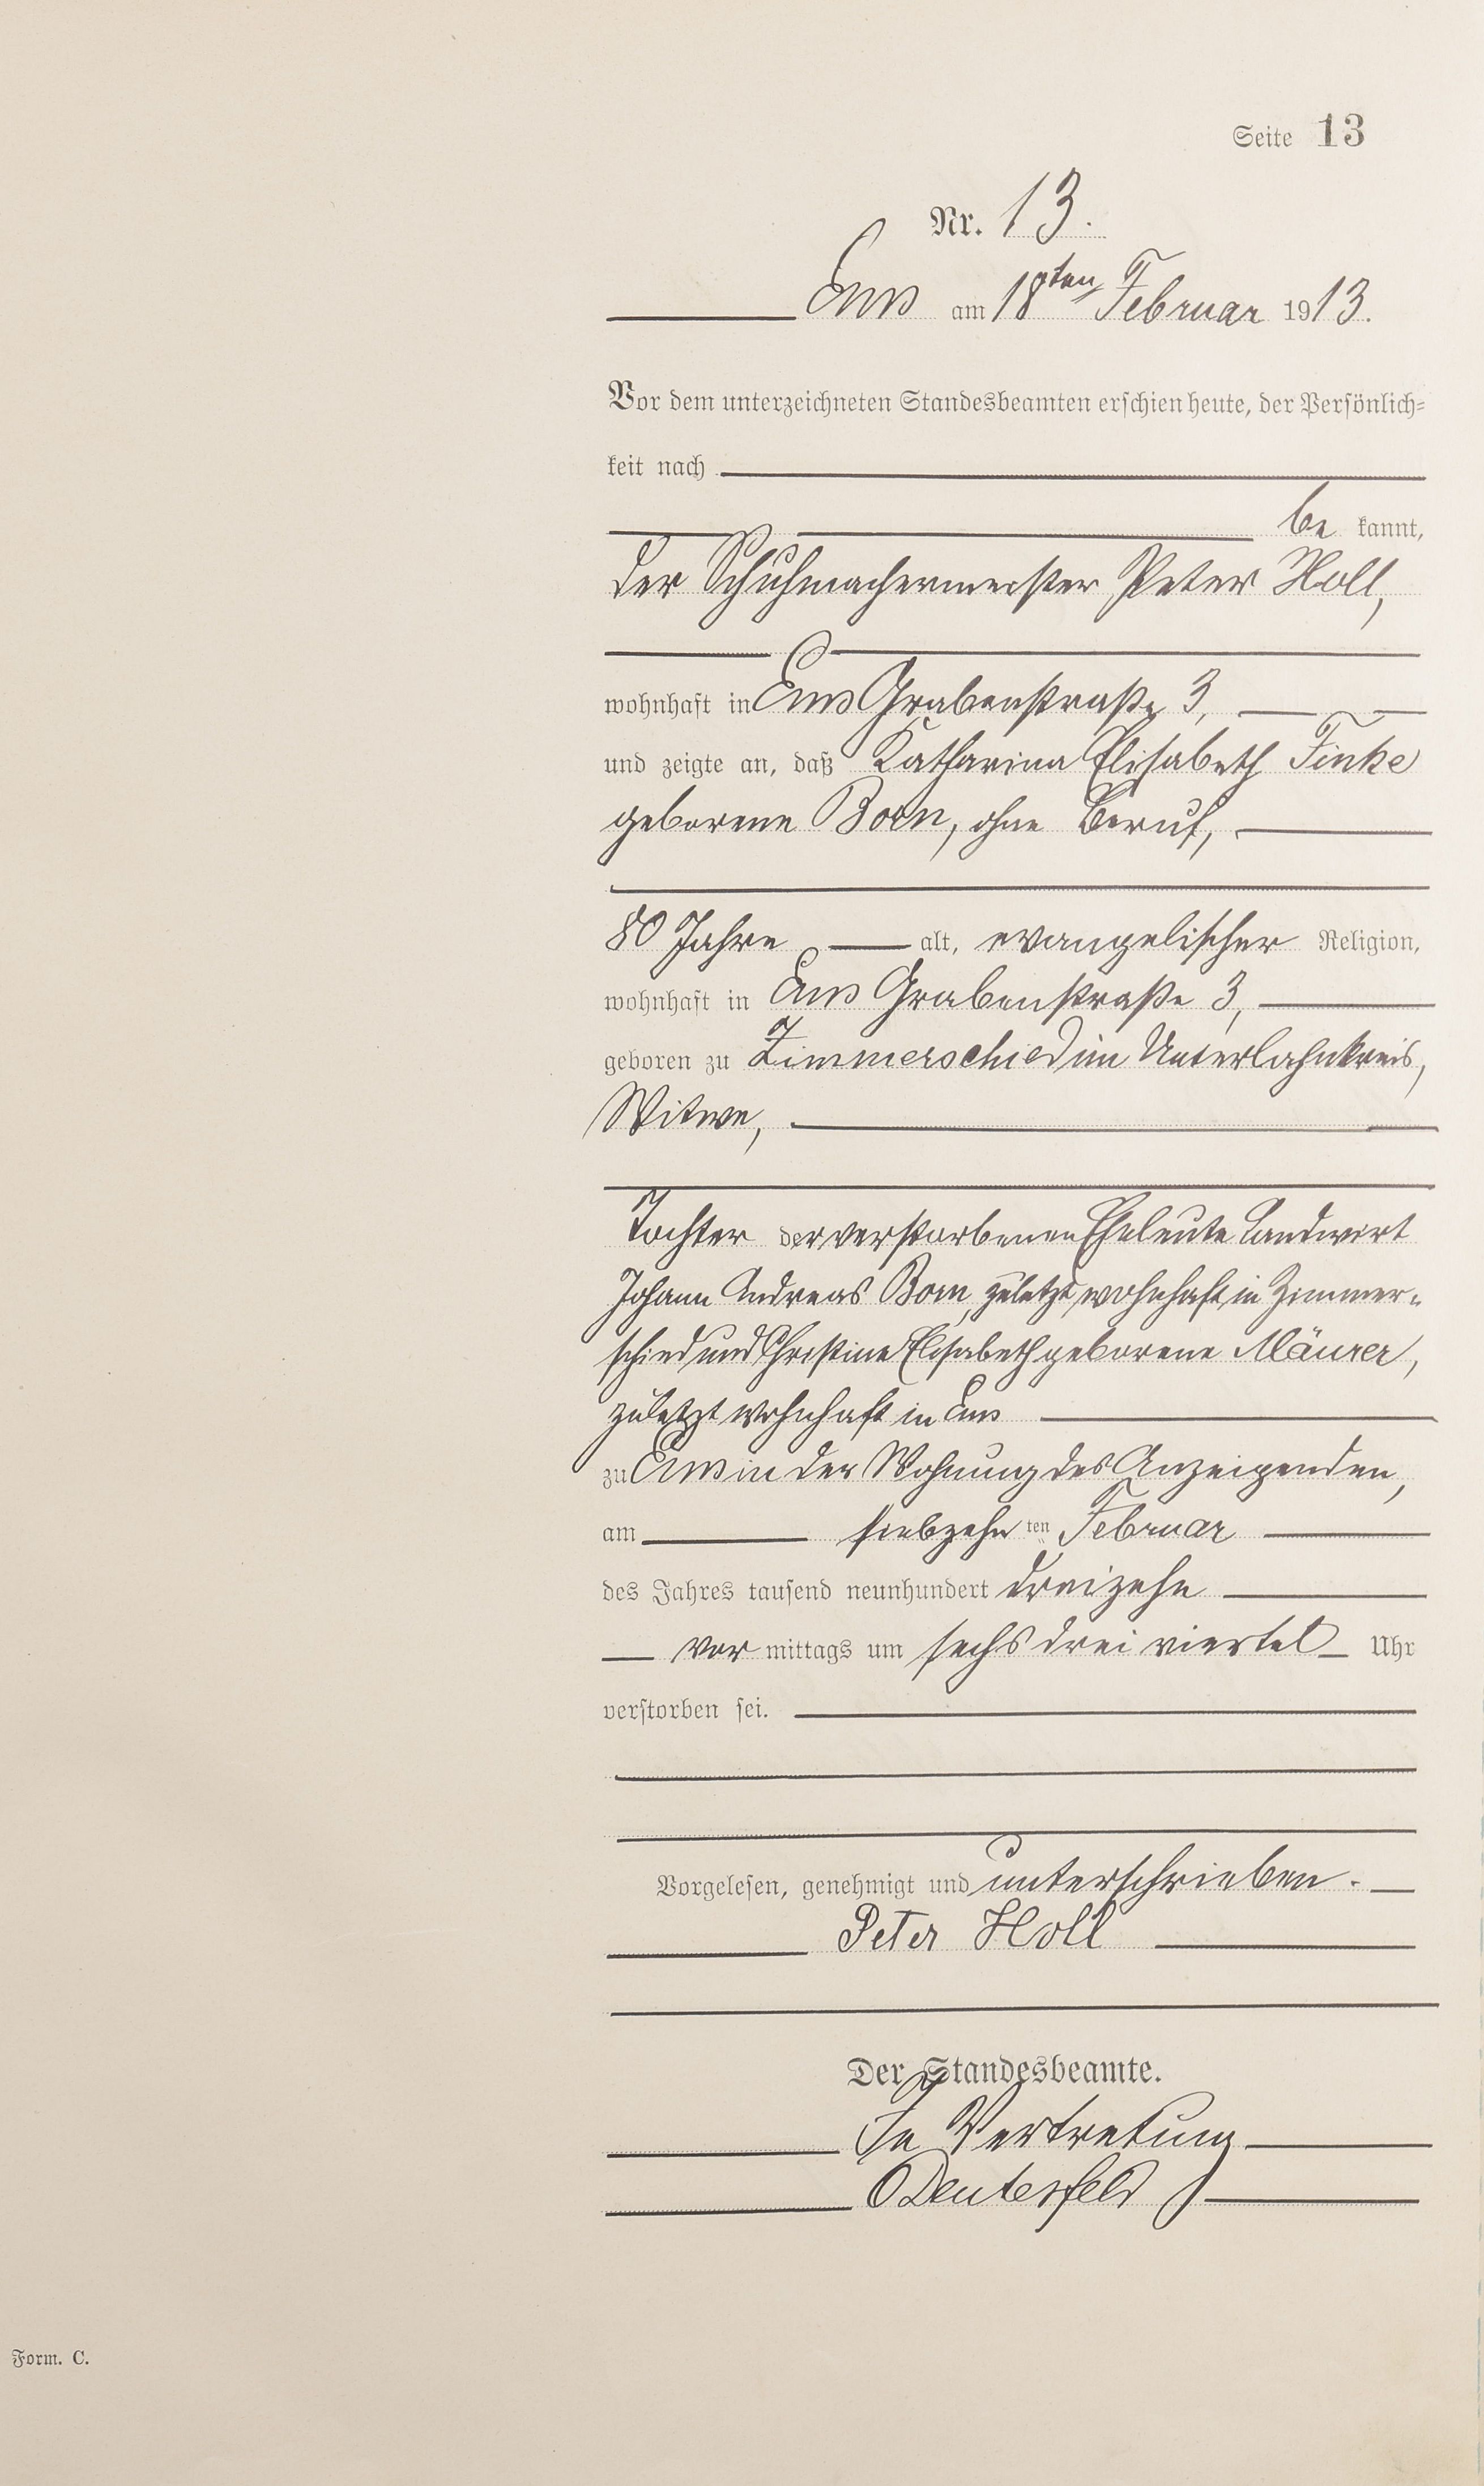 Seite 13
Nr. 13.
Ems am 18ten Februar 1913.
Vor dem unterzeichneten Standesbeamten erschien heute, der Persönlich-
keit nach
be kannt,
der Schuhmachermeister Peter Holl,
wohnhaft in Ems Grabenstraße 3,
und zeigte an, daß Katharina Elisabeth Finke
geborene Born, ohne Beruf,
80 Jahre alt, evangelischer Religion,
wohnhaft in Ems Grabenstraße 3,
geboren zu Zimmerschied im Unterlahnkreis,
Witwe,
Tochter der verstorbenen Eheleute Landwirt
Johann Andreas Born, zuletzt wohnhaft in Zimmer-
schied und Christine Elisabeth geborene Mäurer,
zuletzt wohnhaft in Ems
zu Ems in der Wohnung des Anzeigenden,
am siebzehn ten Februar
des Jahres tausend neunhundert dreizehn
vor mittags um sechs drei viertel Uhr
verstorben sei.
Vorgelesen, genehmigt und unterschrieben.
Peter Holl
Der Standesbeamte.
In Vertretung
Deutesfeld
Form. C.